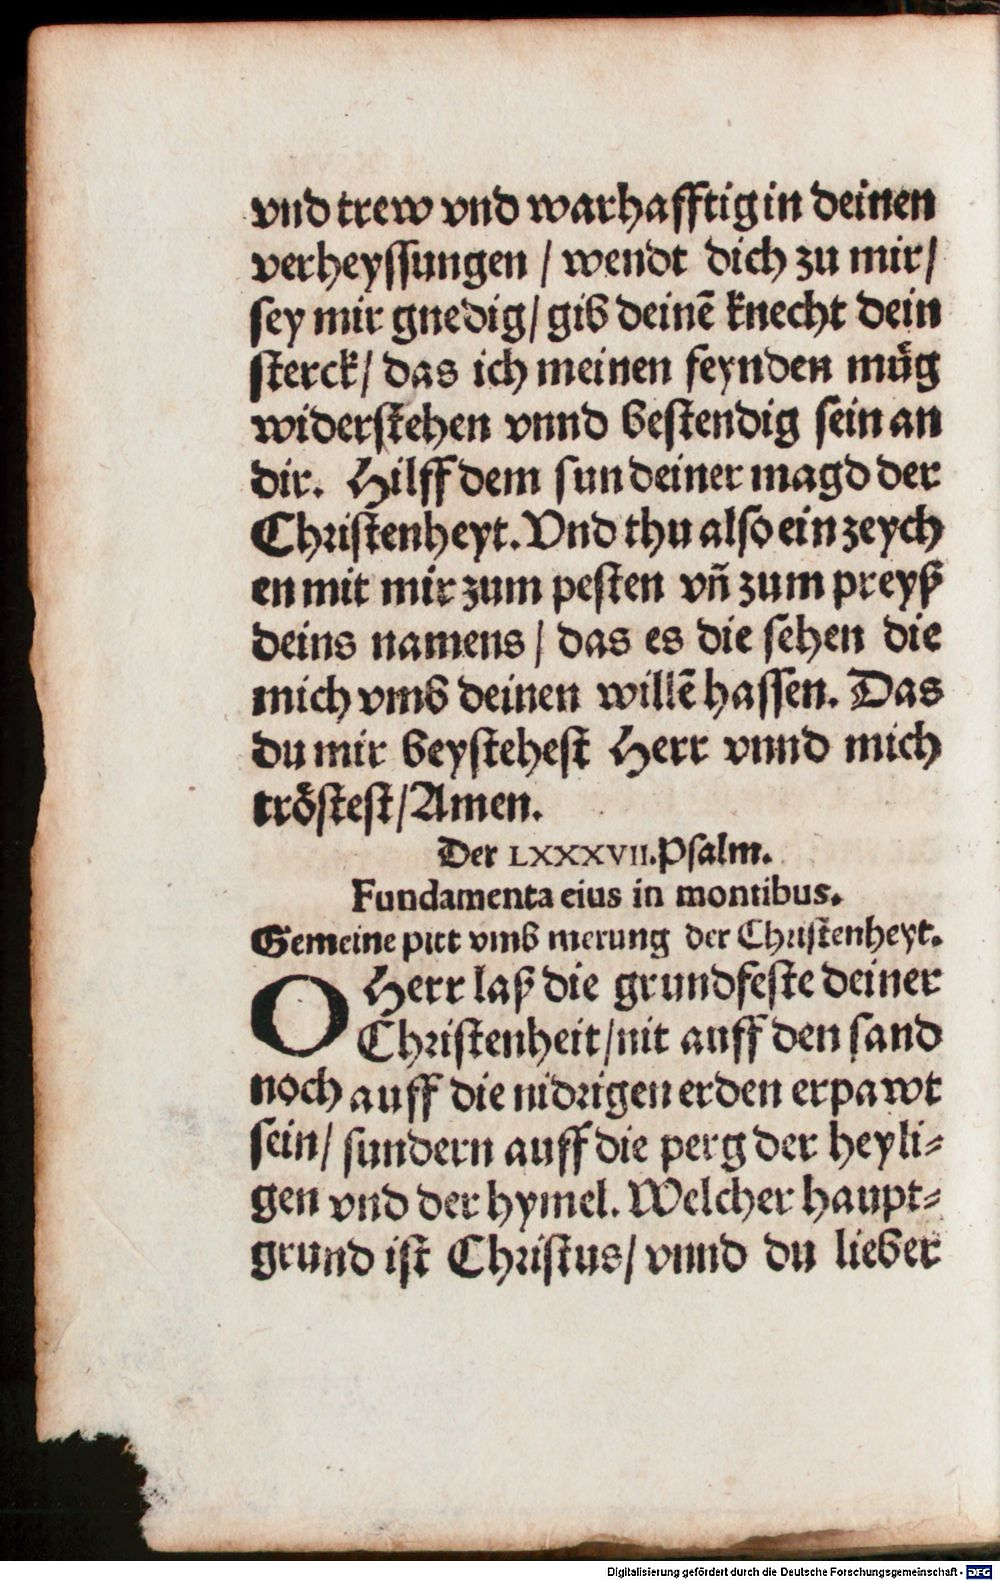 vnd trew vnd warhafftig in deinen
verheyſſungen / wendt dich zu mir /
ſey mir gnedig / gib deinē knecht dein
ſterck / das ich meinen feynden muͤg
widerſtehen vnnd beſtendig ſein an
dir. Hilff dem ſun deiner magd der
Chriſtenheyt. Vnd thu alſo ein zeych
en mit mir zum peſten vñ zum preyß
deins namens / das es die ſehen die
mich vmb deinen willē haſſen. Das
du mir beyſteheſt Herr vnnd mich
troͤſteſt / Amen.
Der LXXXVII. Pſalm.
Fundamenta eius in montibus.
Gemeine pitt vmb merung der Chriſtenheyt.
O Herr laß die grundfeſte deiner
Chriſtenheit / nit auff den ſand
noch auff die nidrigen erden erpawt
ſein / ſundern auff die perg der heyli⸗
gen vnd der hymel. Welcher haupt⸗
grund iſt Chriſtus / vnnd du lieber
Digitalisierung gefördert durch die Deutsche Forschungsgemeinschaft - DFG